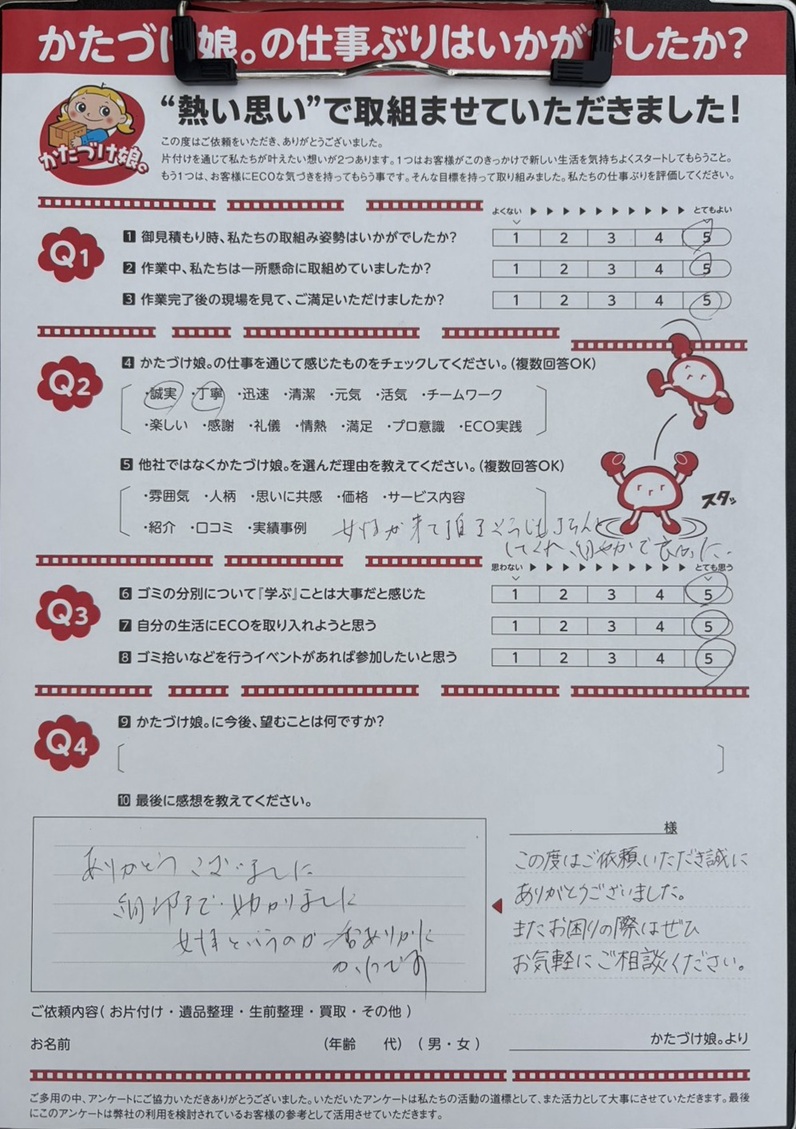 かたづけ娘。の仕事ぶりはいかがでしたか?
かたづけ娘。
“熱い思い”で取組ませていただきました!
この度はご依頼をいただき、ありがとうございました。
片付けを通じて私たちが叶えたい想いが2つあります。1つはお客様がこのきっかけで新しい生活を気持ちよくスタートしてもらうこと。
もう1つは、お客様にECOな気づきを持ってもらう事です。そんな目標を持って取り組みました。私たちの仕事ぶりを評価してください。
よくない ▶ ▶ ▶ ▶ ▶ ▶ ▶ ▶ ▶ ▶ とてもよい
Q1
1 御見積もり時、私たちの取組み姿勢はいかがでしたか? 1 2 3 4 5
2 作業中、私たちは一所懸命に取組めていましたか? 1 2 3 4 5
3 作業完了後の現場を見て、ご満足いただけましたか? 1 2 3 4 5
Q2
4 かたづけ娘。の仕事を通じて感じたものをチェックしてください。(複数回答OK)
・誠実 ・丁寧 ・迅速 ・清潔 ・元気 ・活気 ・チームワーク
・楽しい ・感謝 ・礼儀 ・情熱 ・満足 ・プロ意識 ・ECO実践
5 他社ではなくかたづけ娘。を選んだ理由を教えてください。(複数回答OK)
・雰囲気 ・人柄 ・思いに共感 ・価格 ・サービス内容
スタッ
・紹介 ・口コミ ・実績事例 女性が来て頂き
してくれ、細やかで良かった。
思わない ▶ ▶ ▶ ▶ ▶ ▶ ▶ ▶ ▶ ▶ とても思う
Q3
6 ゴミの分別について『学ぶ』ことは大事だと感じた 1 2 3 4 5
7 自分の生活にECOを取り入れようと思う 1 2 3 4 5
8 ゴミ拾いなどを行うイベントがあれば参加したいと思う 1 2 3 4 5
Q4
9 かたづけ娘。に今後、望むことは何ですか?
10 最後に感想を教えてください。
ありがとうございました
細部まで 助かりました
女性というのが ありがた
かったです
様
この度はご依頼いただき誠に
ありがとうございました。
またお困りの際はぜひ
お気軽にご相談ください。
かたづけ娘。より
ご依頼内容( お片付け・遺品整理・生前整理・買取・その他 )
お名前 (年齢 代) ( 男・女 )
ご多用の中、アンケートにご協力いただきありがとうございました。いただいたアンケートは私たちの活動の道標として、また活力として大事にさせていただきます。最後
にこのアンケートは弊社の利用を検討されているお客様の参考として活用させていただきます。